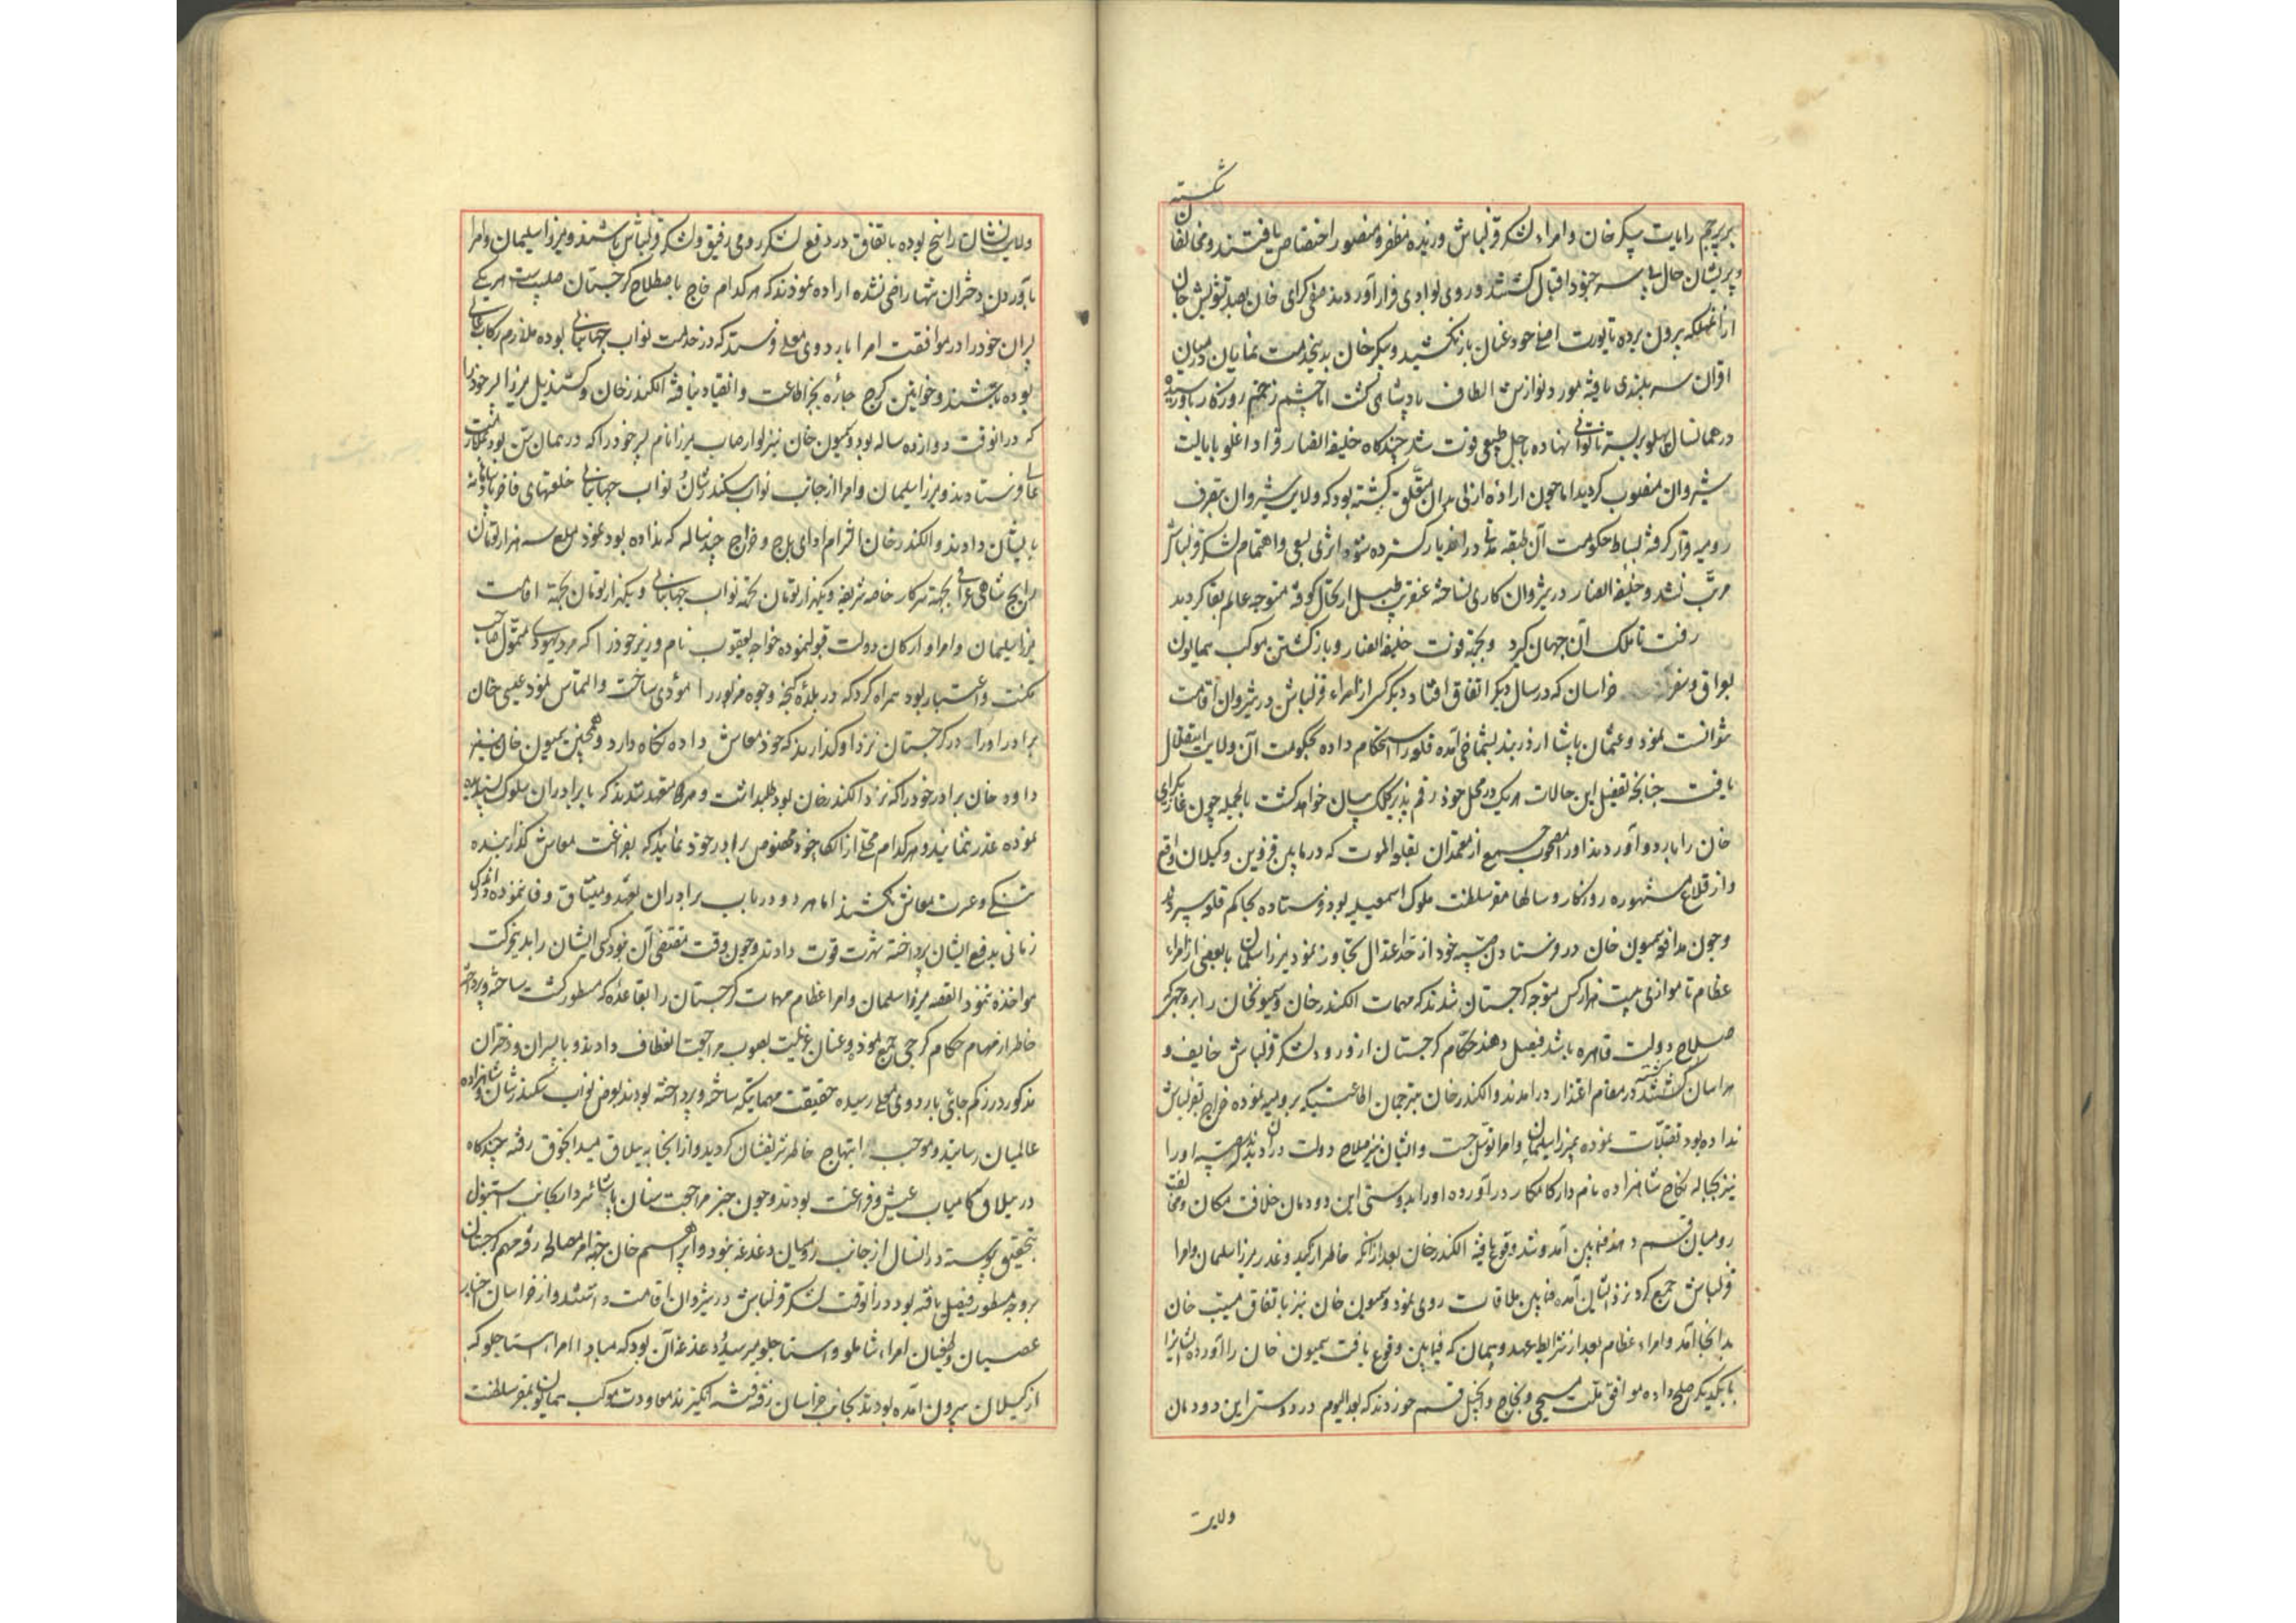 شکسته
بر پرچم رایات پیکر خان و امراء لشکر قزلباش وزیده مظفر و منصور اختصاص یافتند و مخالفان
و پریشان حال سر خود اقبال گشتند و روی بوادی فرار آوردند صفی کرای خان بصد تشویش جان
از آن مهلکه بیرون برده تا یورت اصلی خود عنان باز نکشید و پیکر خان بدین خدمت نمایان در میان
اقران سربلندی یافته مورد نوازش الطاف پادشاهی گشت اما چشم زخم روزگار باو رسیده
در همانسال پهلو بر بستر ناتوانی نهاده باجل طبیعی فوت شد چندگاه خلیفه انصار قراداغلو بایالت
شیروان منصوب گردید اما چون اراده ازلی بدان متعلق گشته بود که ولایت شیروان بتصرف
رومیه قرار گرفته بساط حکومت آن طبقه مدتی در آن دیار گسترده شود اثری بسعی و اهتمام لشکر قزلباش
مرتب نشد و خلیفه انصار در شیروان کاری نساخته عنقریب طبل ارتحال کوفته متوجه عالم بقا گردید
رفت تا ملک آن جهان گیرد و بجهة فوت خلیفه انصار و بازگشتن موکب همایون
بعراق و سفر خراسان که در سال دیگر اتفاق افتاد دیگر کسی از امراء قزلباش در شیروان اقامت
نتوانست نمود و عثمان پاشا از دربند بشماخی آمده قلعه را استحکام داده بحکومت آن ولایت استقلال
یافت چنانچه تفصیل این حالات هر یک در محل خود رقم پذیر کلک بیان خواهد گشت بالجمله چون غازی کرای
خان را باردو آوردند او را مصحوب جمعی از معتمدان بقلعه الموت که در مابین قزوین و گیلان واقع
و از قلاع مشهوره روزگار و سالها مقر سلطنت ملوک اسمعیلیه بود فرستاده بحاکم قلعه سپردند
و چون مدافعه سمیون خان در فرستادن همشیره خود از حد اعتدال تجاوز نمود میرزا سلمان با بعضی از امراء
عظام تا موازی بیست هزار کس متوجه گرجستان شدند که مهمات الکندر خان و سمیونخان را بر وجهی که
صلاح دولت قاهره باشد فیصل دهند حکام گرجستان از ورود لشکر قزلباش خایف و
هراسان گشته در مقام اعتذار درآمدند و الکندر خان مترجمان اطاعت که برومیه نموده خراج بقزلباش
نداده بود تقبلات نموده بمیرزا سلیمان و امرا توسل جست و ایشان نیز صلاح دولت در آن دیدند که همشیره او را
نیز بحباله نکاح شاهزاده نامدار کامکار درآورده او را بدوستی این دودمان خلافت مکان و مخالفت
رومیان قسم دهند فیمابین آمد و شد وقوع یافته الکندر خان بعد از آنکه خاطر از کید و غدر میرزا سلمان و امرا
قزلباش جمع کرد نزد ایشان آمده فیمابین ملاقات روی نمود و سمیون خان نیز باتفاق مسیب خان
بدانجا آمد و امراء عظام بعد از شرایط عهد و پیمان که فیمابین وقوع یافت سمیون خان را آورده ایشانرا
با یکدیگر صلح داده موافق ملت مسیحی و بخاج و انجیل قسم خوردند که بعد الیوم در دوستی این دودمان
ولایت
ولایت نشان راسخ بوده باتفاق در دفع لشکر رومی رفیق و لشکر قزلباش باشند و میرزا سلیمان و امرا
بآوردن دختران تنها راضی نشده اراده نمودند که هر کدام خاج باصطلاح گرجستان صلیب است هر یکی
پسران خود را در موافقت امرا باردوی معلی فرستند که در خدمت نواب جهانبانی بوده ملازم رکاب عالی
بوده باشند و خوانین گرج چاره بجز اطاعت و انقیاد نیافته الکندر خان کستندیل میرزا پسر خود را
که در آنوقت دوازده ساله بود و سمیون خان نیز لوارصاب میرزا نام پسر خود را که در همان سن بود بملازمت
عالی فرستادند و میرزا سلیمان و امرا از جانب نواب سکندر شان و نواب جهانبانی خلعتهای فاخر پادشاهانه
بایشان دادند و الکندر خان التزام ادای باج و خراج چند ساله که نداده بود نمود مبلغ سه هزار تومان
رایج شاهی عراقی بجهة سرکار خاصه شریفه و یکهزار تومان تحفه نواب جهانبانی و یکهزار تومان بجهة اقامت
میرزا سلیمان و امرا و ارکان دولت قبول نموده خواجه یعقوب نام وزیر خود را که مرد یهودی متمول صاحب
مکنت و اعتبار بود همراه کرد که در بلده گنجه وجوه مزبور را مؤدی ساخت و التماس نمود عیسی خان
برادر او را در گرجستان نزد او گذارند که خود معاش داده نگاه دارد و همچنین سمیون خان نیز
داود خان برادر خود را که نزد الکندر خان بود طلب داشت و هر دو متعهد شدند که با برادران سلوک پسندیده
نموده غدر ننمایند و هر کدام محلی از الکاء خود مخصوص برادر خود نمایند که بفراغت معاش گذرانیده
تنگی و عسرت معاش نکشند اما هر دو در باب برادران بعهد و میثاق وفا ننموده در اندک
زمانی بدفع ایشان پرداخته شربت فوت دادند و چون وقت مقتضی آن نبود کسی ایشان را بدین حرکت
مواخذه ننمود القصه میرزا سلمان و امراء عظام مهمات گرجستان را بقاعده که مسطور گشت ساخته و پرداخته
خاطر از مهام حکام گرجی جمع نموده عنان عزیمت بصوب مراجعت انعطاف دادند و با پسران و دختران
مذکور در زکم جائی باردوی معلی رسیده حقیقت مهماتیکه ساخته و پرداخته بودند بعرض نواب سکندر شان و شاهزاده
عالمیان رسانیدند و موجب ابتهاج خاطر شریفشان گردید و از آنجا به ییلاق میدانجوق رفته چندگاه
در ییلاق کامیاب عیش و فراغت بودند و چون خبر مراجعت سنان پاشاء سردار بجانب استنبول
بتحقیق پیوسته در آنسال از جانب رومیان دغدغه نبود و ابراهیم خان بجهة امر مصالحه رفته مهم گرجستان
بر وجه مسطور فیصل یافته بود در آنوقت لشکر قزلباش در شیروان اقامت داشتند و از خراسان اخبار
عصیان و طغیان امراء شاملو و استاجلو میرسید دغدغه آن بود که مبادا امراء استاجلو که
از گیلان بیرون آمده بودند بجانب خراسان رفته فتنه انگیزند معاودت موکب همایون بمقر سلطنت